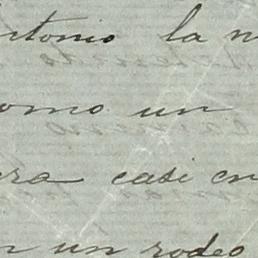 ntonio la
omo un
era casi en
n un rodeo